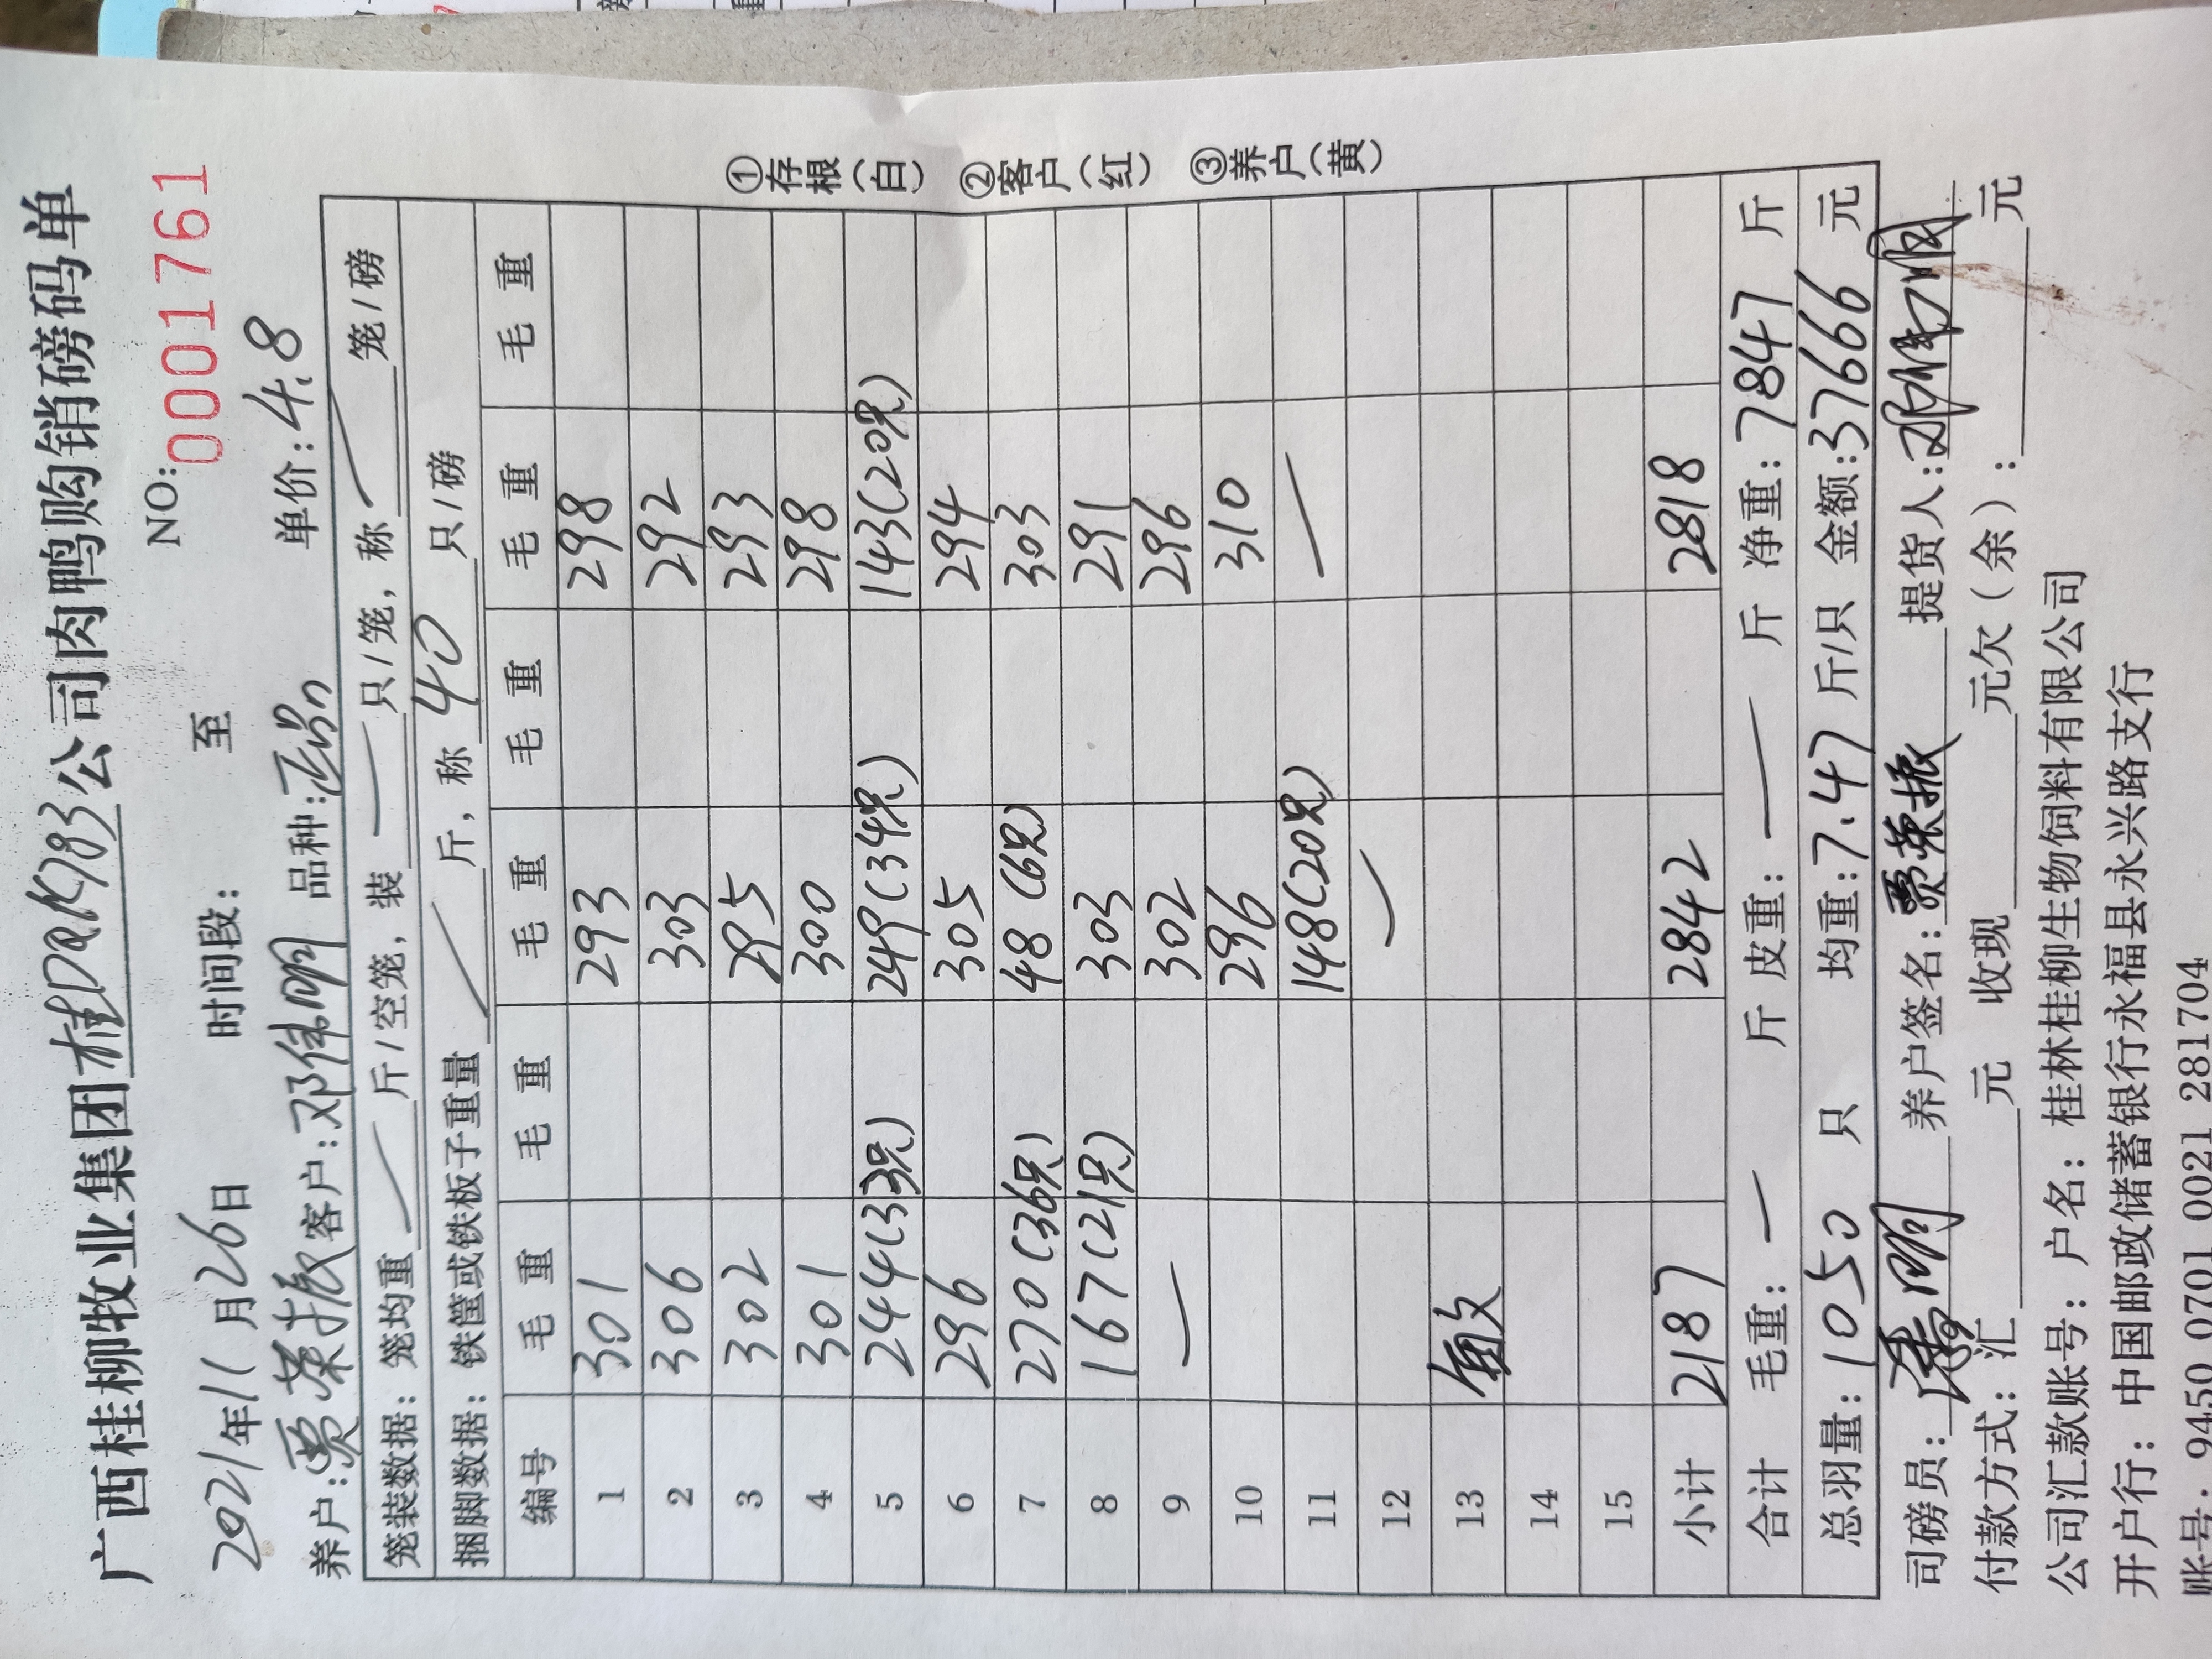 广西桂柳牧业集团桂DQK783公司肉鸭购销磅码单
NO: 0001761
2021年11月26日 时间段: 至
养户:贾荣振 客户:邓伟明 品种: 单价:4.8
笼装数据: 笼均重 斤/空笼, 装 只/笼, 称 笼/磅
捆脚数据: 铁筐或铁板子重量 斤, 称 40 只/磅
编号 毛重 毛重 毛重 毛重 毛重 毛重
1 301 293 298
2 306 303 292
3 302 295 293
4 301 300 298
5 244(33只) 249(34只) 143(20只)
6 296 305 294
7 270(36只) 48(6只) 303
8 167(21只) 303 291
9 — 302 296
10 296 310
11 148(20只) —
12
13
14
15
小计 2187 2842 2818
合计 毛重: — 斤 皮重: — 斤 净重: 7847 斤
总羽量: 1050 只 均重: 7.47 斤/只 金额: 37666 元
司磅员: 养户签名: 贾荣振 提货人: 邓伟明
付款方式: 汇 元 收现 元欠(余): 元
公司汇款账号: 户名: 桂林桂柳生物饲料有限公司
开户行: 中国邮政储蓄银行永福县永兴路支行
账号: 9450 0701 0021 2817704
①存根(白) ②客户(红) ③养户(黄)